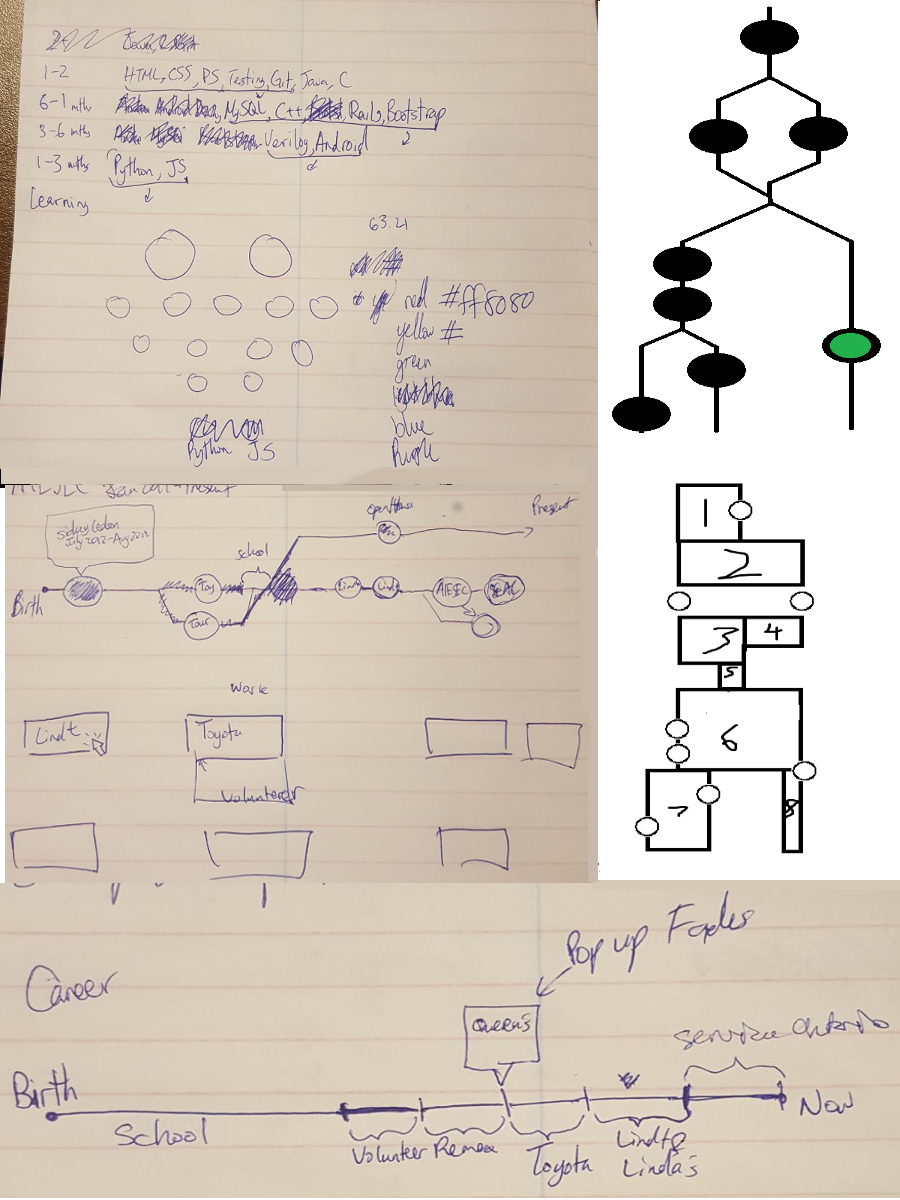 1-2 HTML, CSS, PS, Testing, Git, Java, C
6-1 mths MySQL, C++, Rails, Bootstrap
3-6 mths Verilog, Android
1-3 mths Python, JS
Learning
63.21
red #ff8080
yellow #
green
blue
Purple
Python JS
Present
July 2012-Aug 2012
school
Present
Birth
Toy
Tour
Lindt
AIESEC
Work
Lindt
Toyota
Volunteer
1
2
3
4
5
6
7
8
Career
Pop up Fades
Queen's
Service Ontario
Birth
Now
School
Volunteer Remax
Toyota
Lindt &
Linda's